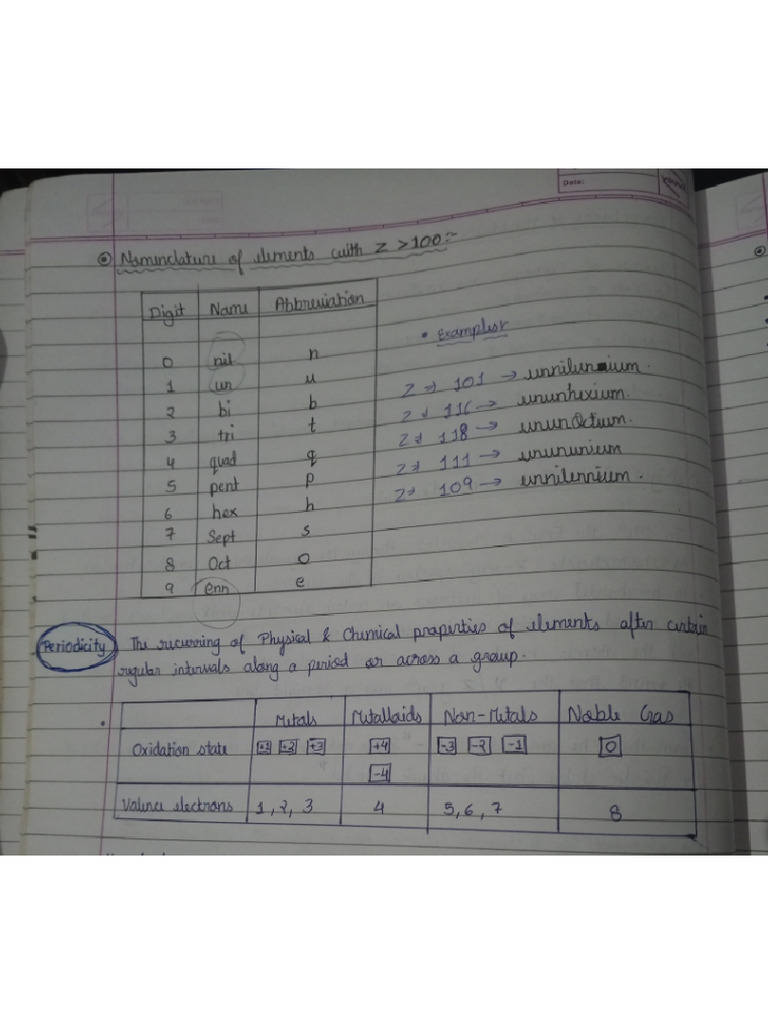 Date:
Nomenclature of elements with Z > 100 :-
Digit Name Abbreviation
• Examples:-
0 nil n
1 un u
2 bi b
3 tri t
4 quad q
5 pent p
6 hex h
7 Sept s
8 Oct o
9 enn e
Z → 101 → unnilunium.
Z → 116 → ununhexium.
Z → 118 → ununOctium.
Z → 111 → unununium
Z → 109 → unnilennium.
Periodicity The recurring of Physical & Chemical properties of elements after certain
regular intervals along a period or across a group.
Metals Metalloids Non-Metals Noble Gas
Oxidation state +1 +2 +3 +4 -3 -2 -1 0
-4
Valence electrons 1, 2, 3 4 5, 6, 7 8